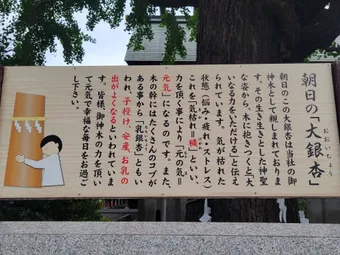 朝日の「大銀杏」
おおいちょう
朝日のこの大銀杏は当社の御
神木として親しまれておりま
す。その生き生きとした神聖
な姿から、木に抱きつくと「大
いなる力をいただける」と伝え
られています。気が枯れた
状態(悩み・疲れ・ストレス)
これを「気枯れ=穢」といい、
力を頂く事により「元の気=
元気」になるのです。また、
木の幹にはたくさんのコブが
ある事から「乳銀杏」ともい
われ、子授け、安産、お乳の
出がよくなるといわれていま
す。皆様、御神木の力を頂い
て元気で幸福な毎日をお過ご
し下さい。